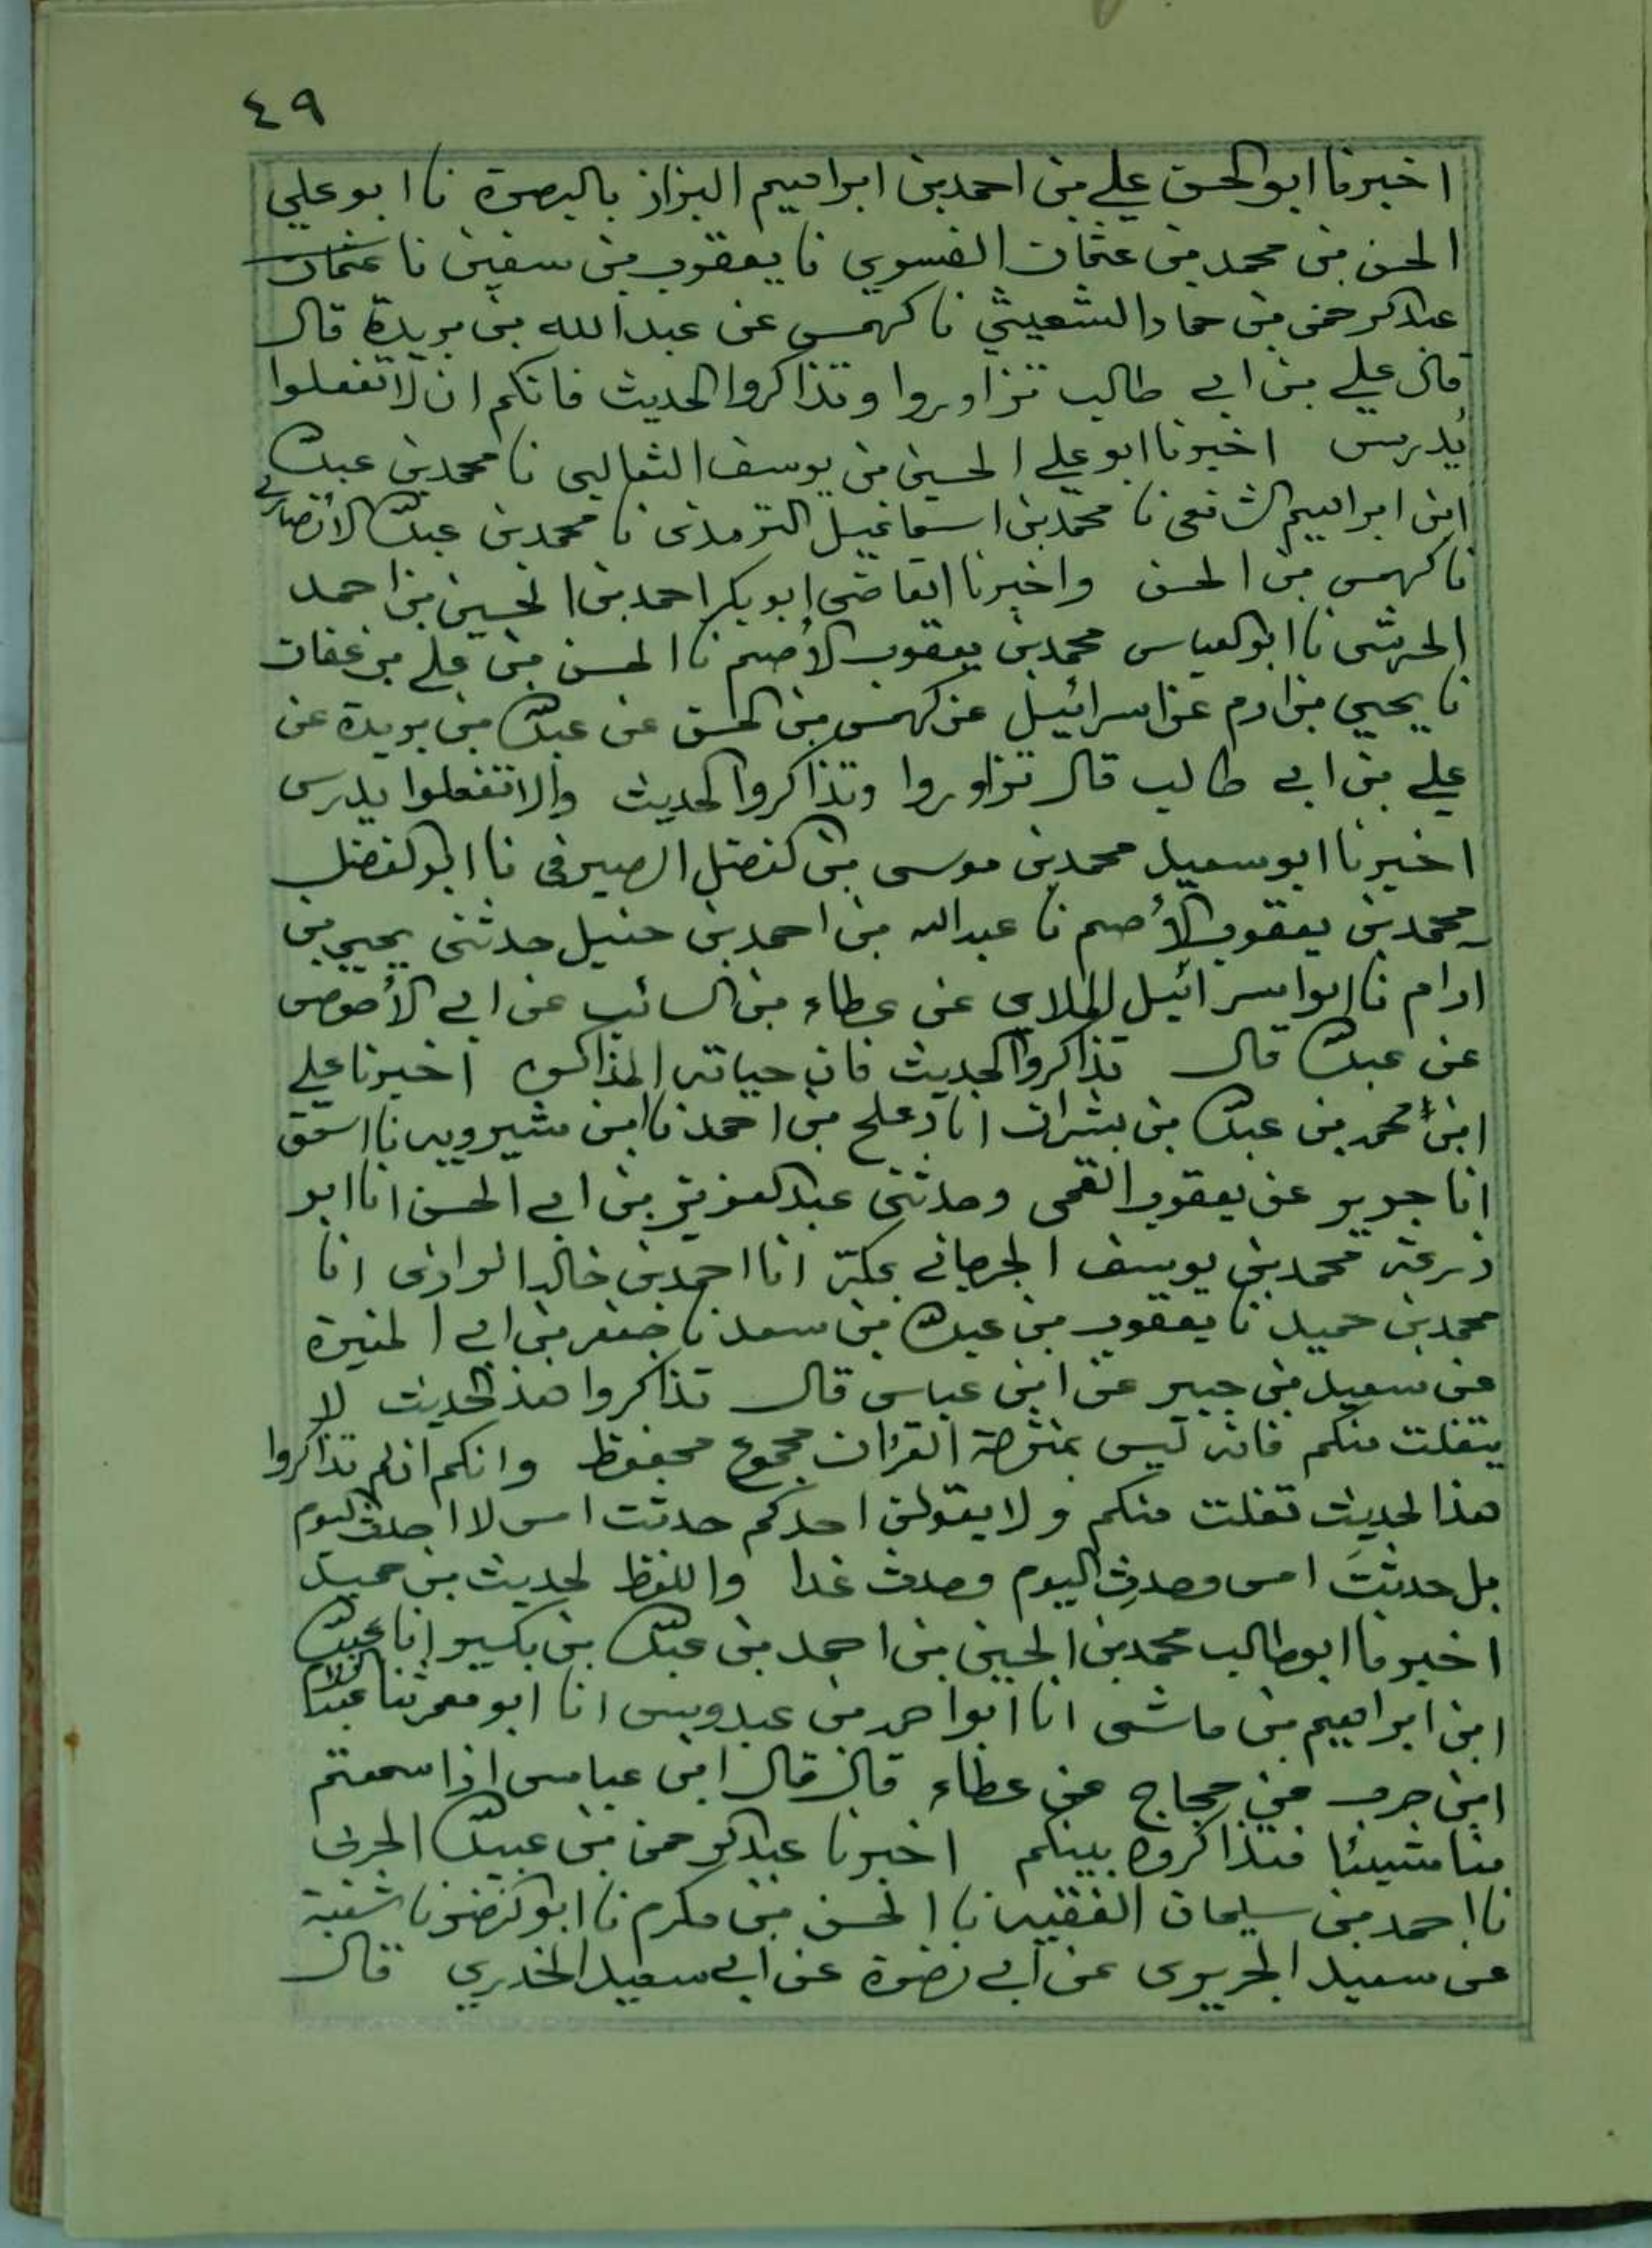 ٤٩
اخبرنا ابو الحسن علي بن احمد بن ابراهيم البزاز بالبصرة نا ابو علي
الحسن بن محمد بن عثمان الفسوي نا يعقوب بن سفين نا عثمان
عبد الرحمن بن حماد الشعيثي نا كهمس عن عبد الله بن بريدة قال
قال علي بن ابي طالب تزاوروا وتذاكروا الحديث فانكم ان لا تفعلوا
يدرس اخبرنا ابو علي الحسين بن يوسف الثعالبي نا محمد بن عبد الله
ابن ابراهيم الشافعي نا محمد بن اسماعيل الترمذي نا محمد بن عبد الله الأنصاري
نا كهمس بن الحسن واخبرنا القاضي ابو بكر احمد بن الحسين بن احمد
الحرشي نا ابو العباس محمد بن يعقوب الأصم نا الحسن بن علي بن عفان
نا يحيي بن ادم عن اسرائيل عن كهمس بن الحسن عن عبد الله بن بريدة عن
علي بن ابي طالب قال تزاوروا وتذاكروا الحديث والا تفعلوا يدرس
اخبرنا ابو سعيد محمد بن موسى بن الفضل الصيرفي نا ابو الفضل
محمد بن يعقوب الأصم نا عبد الله بن احمد بن حنبل حدثني يحيي بن
ادام نا ابو اسرائيل الملاي عن عطاء بن السائب عن ابي الأحوص
عن عبد الله قال تذاكروا الحديث فان حياته المذاكره اخبرنا علي
ابن محمد بن عبد الله بن بشران انا دعلج بن احمد نا ابن شيرويه نا اسحق
انا جرير عن يعقوب القمي وحدثني عبد العزيز بن ابي الحسن انا ابو
زرعة محمد بن يوسف الجرجاني بمكة انا احمد بن خالد الرازي انا
محمد بن حميد نا يعقوب بن عبد الله بن سعد نا جعفر بن ابي المغيرة
عن سعيد بن جبير عن ابن عباس قال تذاكروا هذا الحديث لا
يتفلت منكم فانه ليس بمنزلة القران مجموع محفوظ وانكم ان لم تذاكروا
هذا الحديث تفلت منكم ولا يقولن احدكم حدثت امس لا احدث اليوم
بل حدثتَ امس وحدث اليوم وحدث غدا واللفظ لحديث بن حميد
اخبرنا ابو طالب محمد بن الحسين بن احمد بن عبد الله بن بكير انا عبد الله
ابن ابراهيم بن ماشى انا ابو احمد بن عبدوس انا ابو معمر ثنا عبد السلام
ابن حرب عن حجاج عن عطاء قال قال ابن عباس اذا سمعتم
منا شيئا فتذاكروه بينكم اخبرنا عبد الرحمن بن عبيد الله الحربي
نا احمد بن سليمان الفقيه نا الحسن بن مكرم نا ابو النضر نا شعبة
عن سعيد الجريري عن ابي نضرة عن ابي سعيد الخدري قال